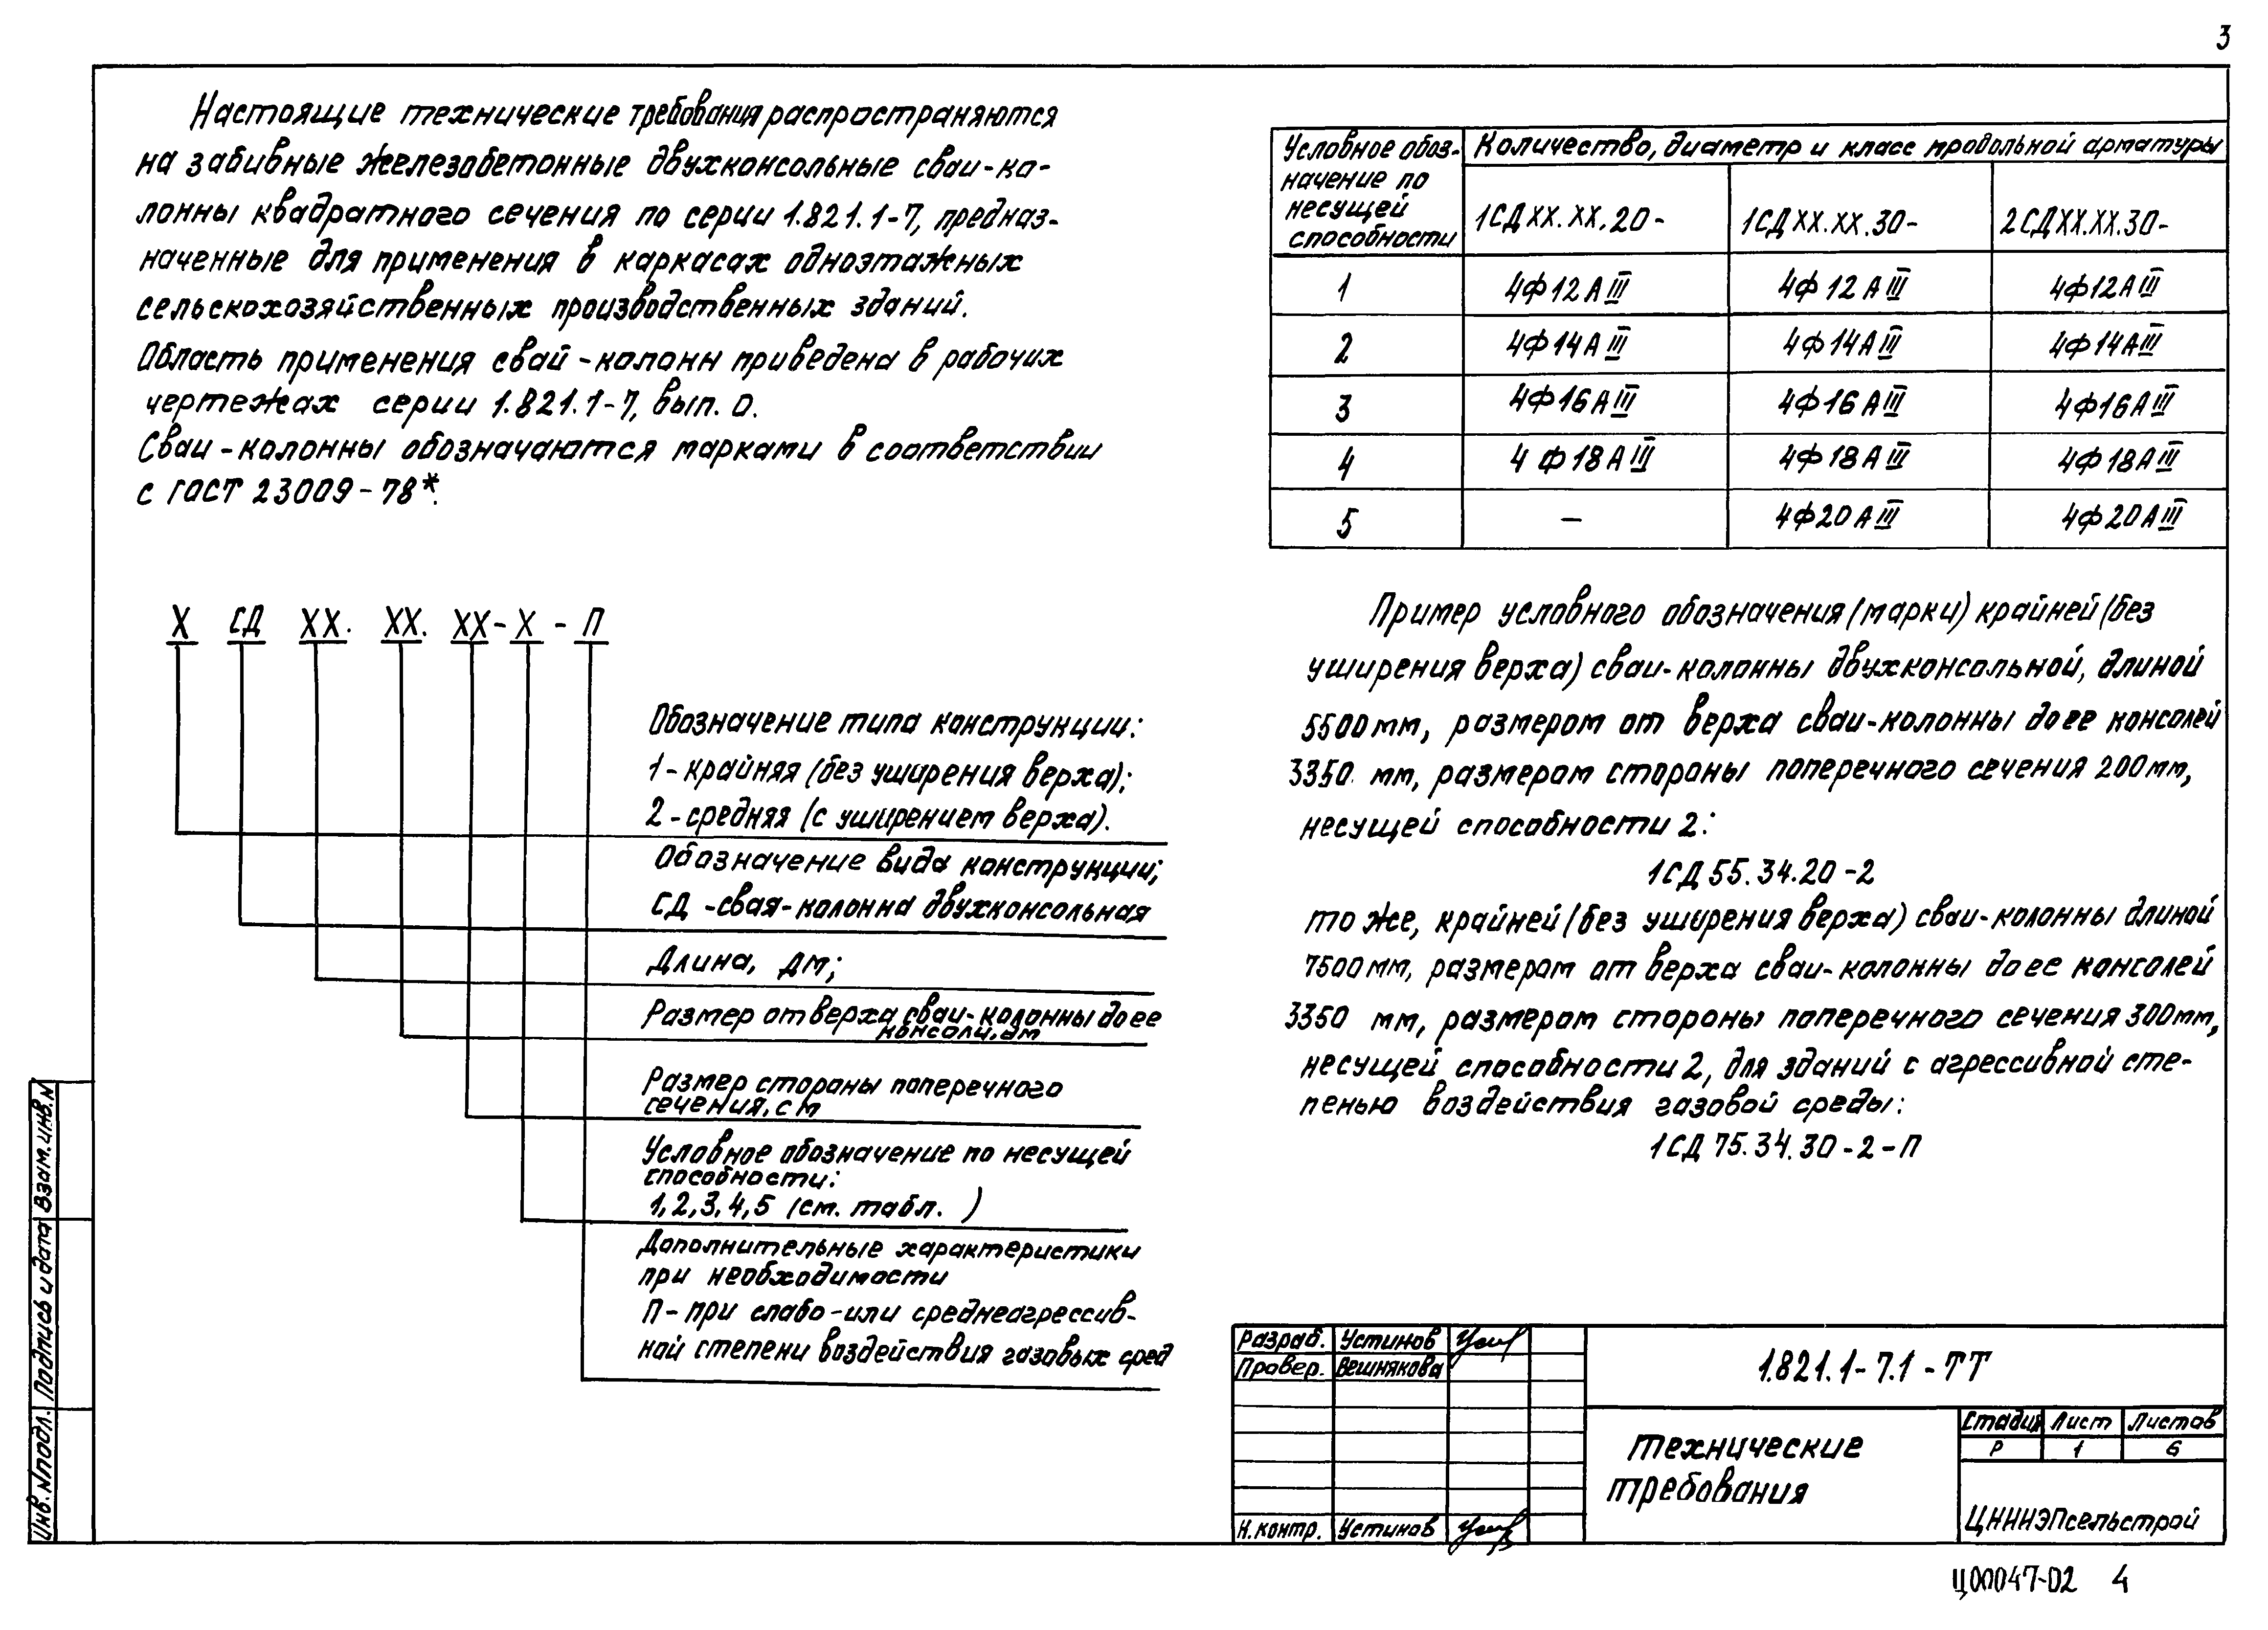 3
Настоящие технические требования распространяются
на забивные железобетонные двухконсольные сваи-ко-
лонны квадратного сечения по серии 1.821.1-7, предназ-
наченные для применения в каркасах одноэтажных
сельскохозяйственных производственных зданий.
Область применения свай-колонн приведена в рабочих
чертежах серии 1.821.1-7, вып. 0.
Сваи-колонны обозначаются марками в соответствии
с ГОСТ 23009-78*.
Х СД ХХ. ХХ. ХХ-Х-П
Обозначение типа конструкции:
1-крайняя (без уширения верха);
2-средняя (с уширением верха).
Обозначение вида конструкции;
СД-свая-колонна двухконсольная
Длина, дм;
Размер от верха сваи-колонны до ее
консоли, дм
Размер стороны поперечного
сечения, см
Условное обозначение по несущей
способности:
1,2,3,4,5 (см. табл. )
Дополнительные характеристики
при необходимости
П-при слабо-или среднеагрессив-
ной степени воздействия газовых сред
Условное обоз-
начение по
несущей
способности
Количество, диаметр и класс продольной арматуры
1СДХХ.ХХ.20- 1СДХХ.ХХ.30- 2СДХХ.ХХ.30-
1 4Ф12АIII 4Ф12АIII 4Ф12АIII
2 4Ф14АIII 4Ф14АIII 4Ф14АIII
3 4Ф16АIII 4Ф16АIII 4Ф16АIII
4 4Ф18АIII 4Ф18АIII 4Ф18АIII
5 – 4Ф20АIII 4Ф20АIII
Пример условного обозначения (марки) крайней (без
уширения верха) сваи-колонны двухконсольной, длиной
5500мм, размером от верха сваи-колонны до ее консолей
3350 мм, размером стороны поперечного сечения 200мм,
несущей способности 2:
1СД55.34.20-2
то же, крайней (без уширения верха) сваи-колонны длиной
7500мм, размером от верха сваи-колонны до ее консолей
3350 мм, размером стороны поперечного сечения 300мм,
несущей способности 2, для зданий с агрессивной сте-
пенью воздействия газовой среды:
1СД75.34.30-2-П
Взам.инв.N
Подпись и дата
Инв.Nподл.
Разраб. Устинов
Провер. Вешнякова
Н.контр. Устинов
1.821.1-7.1-ТТ
Технические
требования
Стадия Лист Листов
Р 1 6
ЦНИИЭПсельстрой
Ц00047-02 4